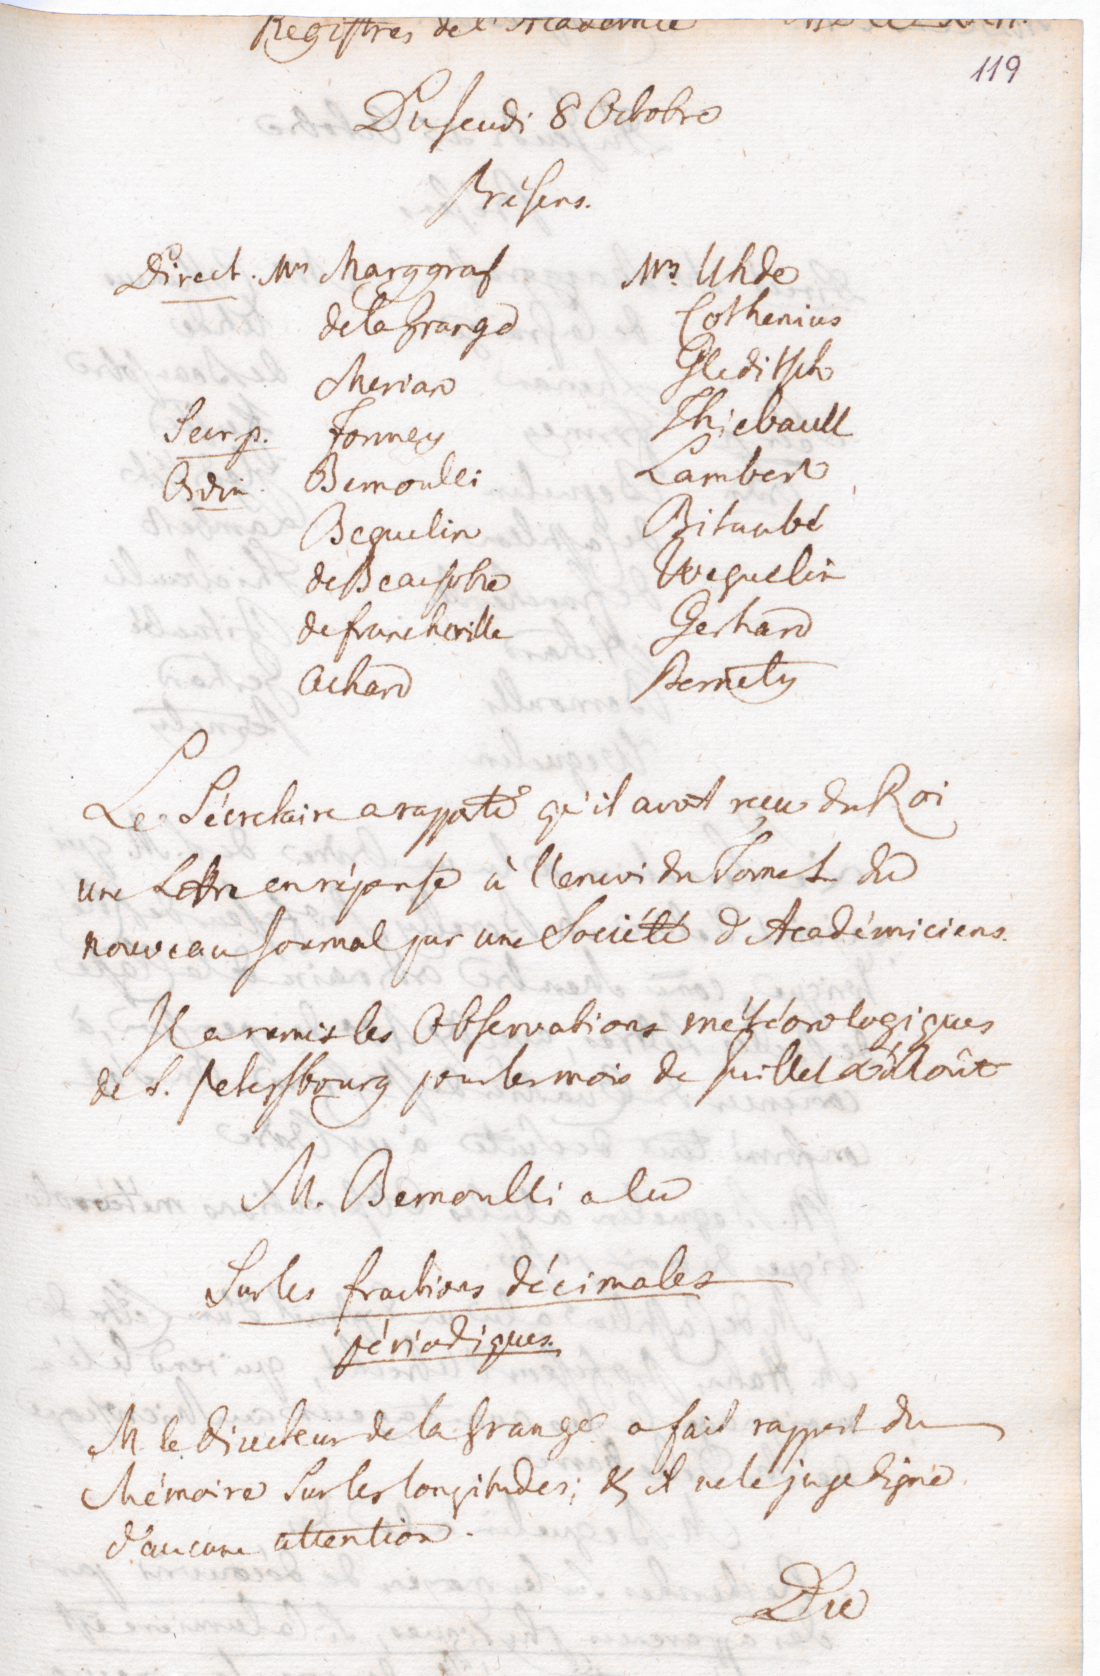 Registres de l'Academie
119
Du Jeudi 8 Octobre
Présens.
Direct. Mrs Marggraf
de la Grange
Merian
Secr. p. Formey
Ordin. Bernoulli
Beguelin
de Beausobre
de Francheville
Achard
Mrs. Uhde
Cothenius
Gleditsch
Thiebault
Lambert
Bitaubé
Weguelin
Gerhard
Pernety
Le Sécretaire a rapporté qu'il avoit reçu du Roi
une Lettre en réponse à l'envoi du Tome I. du
nouveau Journal par une Société d'Académiciens.
Il a remis les Observations météorologiques
de S. Petersbourg pour les mois de Juillet & d'Août
M. Bernoulli a lu
Sur les fractions décimales
périodiques.
M. le Directeur de la Grange a fait rapport du
Mémoire sur les longitudes; & il ne le juge digne
d'aucune attention.
Du